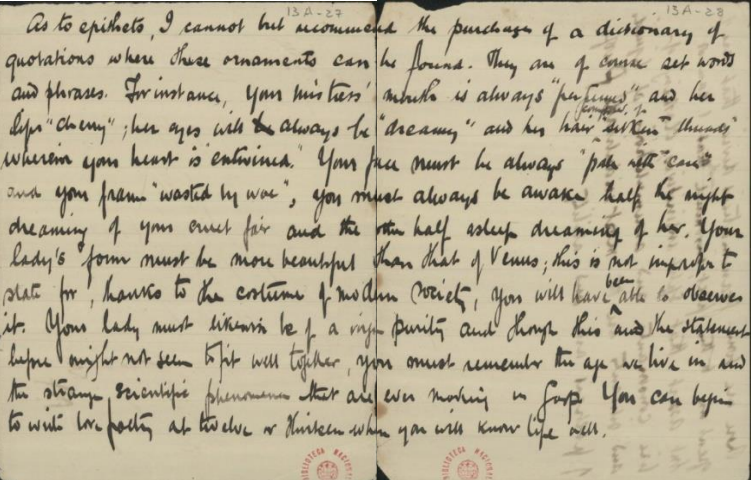 13A-27
13A-28
As to epithets, I cannot but recommend the purchase of a dictionary of
quotations where these ornaments can be found. They are of course set words
and phrases. For instance, your mistress' mouth is always "perfumed" and her
lips "cherry"; her eyes will always be "dreamy" and her hair "composed of silken threads
wherein your heart is entwined." Your face must be always "pale with care"
and your frame "wasted by woe", you must always be awake half the night
dreaming of your cruel fair and the other half asleep dreaming of her. Your
lady's form must be more beautiful than that of Venus; this is not improper to
state for, thanks to the costume of modern society, you will have been able to observe
it. Your lady must likewise be of a virgin purity and though this and the statement
before might not seem to fit well together, you must remember the age we live in and
the strange scientific phenomena that are ever moving in
You can begin
to write love poetry at twelve or thirteen when you will know life well.
BIBLIOTECA NACIONAL
BIBLIOTECA NACIONAL